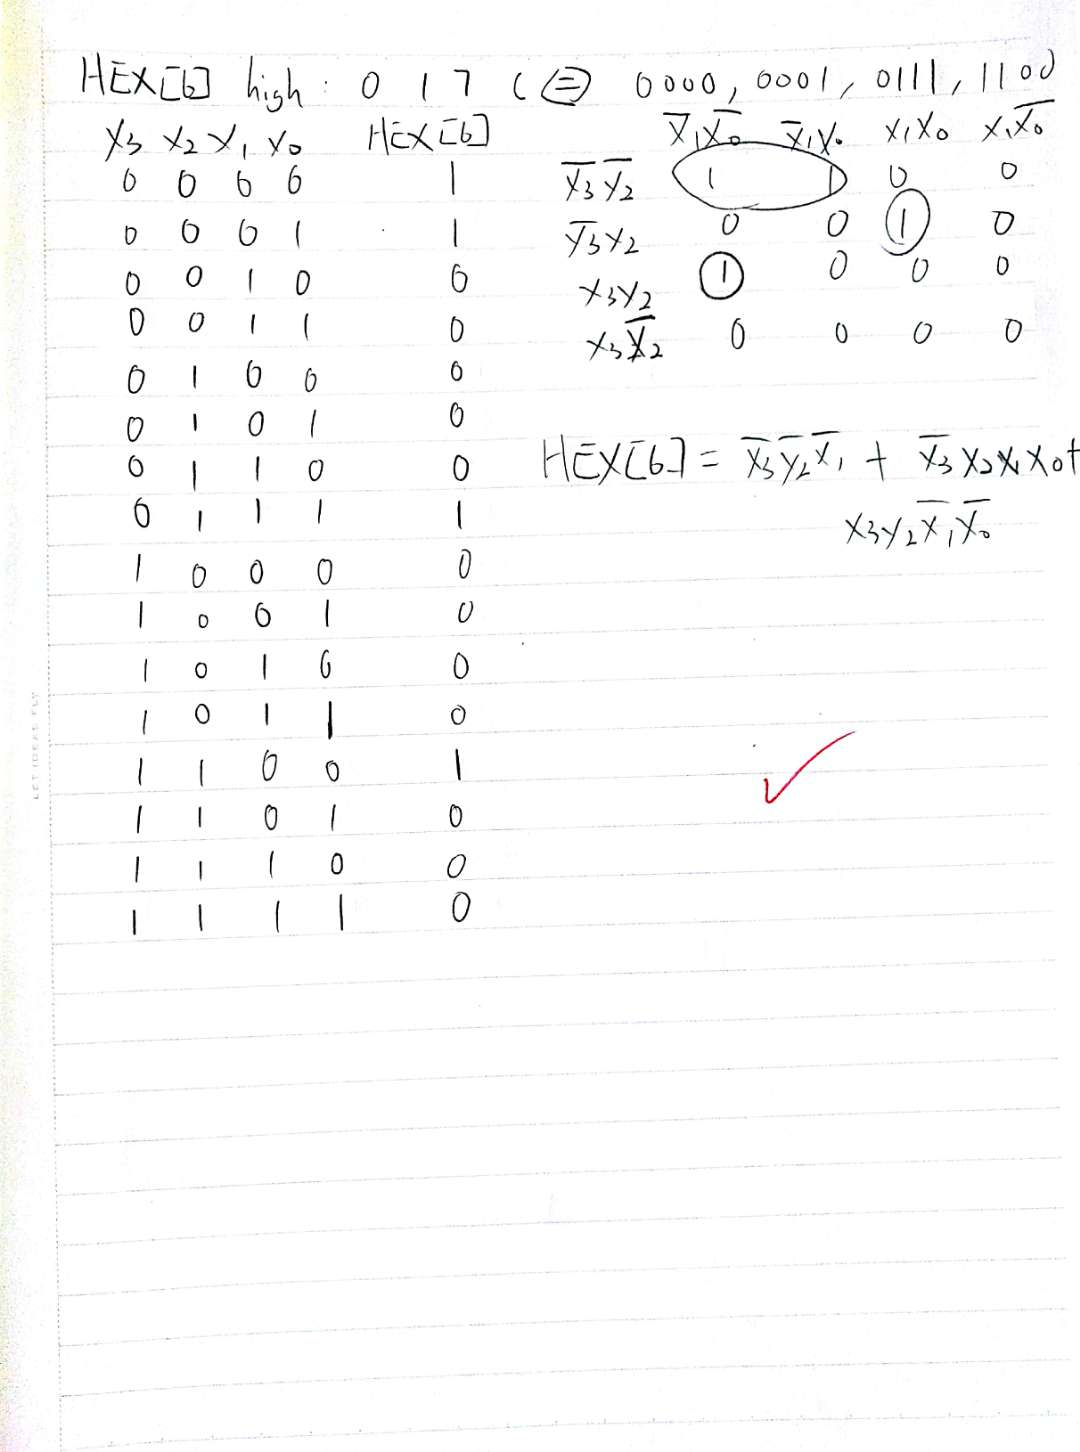 HEX[6] high: 0 1 7 C ⇔ 0000, 0001, 0111, 1100
X3 X2 X1 X0 HEX[6]
0 0 0 0 1
0 0 0 1 1
0 0 1 0 0
0 0 1 1 0
0 1 0 0 0
0 1 0 1 0
0 1 1 0 0
0 1 1 1 1
1 0 0 0 0
1 0 0 1 0
1 0 1 0 0
1 0 1 1 0
1 1 0 0 1
1 1 0 1 0
1 1 1 0 0
1 1 1 1 0
X̅1X̅0 X̅1X0 X1X0 X1X̅0
X̅3X̅2 1 1 0 0
X̅3X2 0 0 1 0
X3X2 1 0 0 0
X3X̅2 0 0 0 0
HEX[6] = X̅3X̅2X̅1 + X̅3X2X1X0+
X3X2X̅1X̅0